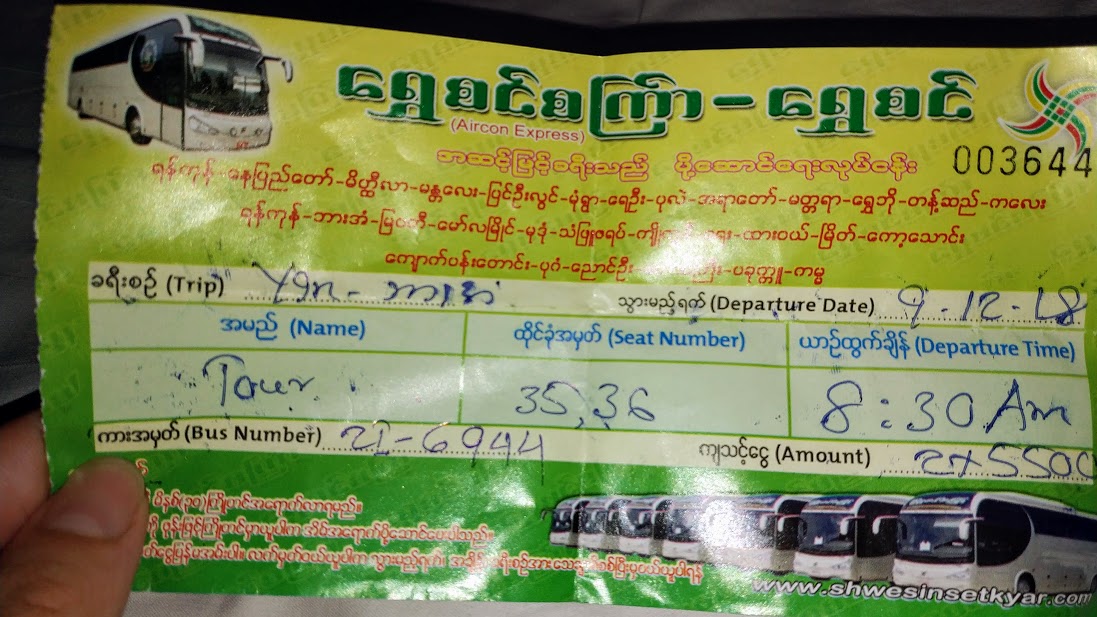 ရွှေစင်စကြာ-ရွှေစင်
(Aircon Express)
အဆင့်မြင့်ခရီးသည် ပို့ဆောင်ရေးလုပ်ငန်း
003644
ရန်ကုန်-နေပြည်တော်-မိတ္ထီလာ-မန္တလေး-ပြင်ဦးလွင်-မုံရွာ-ရေဦး-ပုလဲ-အရာတော်-မတ္တရာ-ရွှေဘို-တန့်ဆည်-ကလေး
ရန်ကုန်-ဘားအံ-မြဝတီ-မော်လမြိုင်-မုဒုံ-သံဖြူဇရပ်-ထားဝယ်-မြိတ်-ကော့သောင်း
ကျောက်ပန်းတောင်း-ပုဂံ-ညောင်ဦး-ပခုက္ကူ-ကမ္မ
ခရီးစဉ် (Trip) Ygn - ဘားအံ သွားမည့်ရက် (Departure Date) 9-12-18
အမည် (Name) ထိုင်ခုံအမှတ် (Seat Number) ယာဉ်ထွက်ချိန် (Departure Time)
Tour 35,36 8:30 Am
ကားအမှတ် (Bus Number) 2I-6944 ကျသင့်ငွေ (Amount) 2x5500
မိနစ်(၃၀)ကြိုတင်အရောက်လာရမည်။
ဖုန်းဖြင့်ကြိုတင်မှာယူပါက အိမ်အရောက်ပို့ဆောင်ပေးပါသည်။
လက်မှတ်ဝယ်ယူပါက သွားမည့်ရက်၊
www.shwesinsetkyar.com